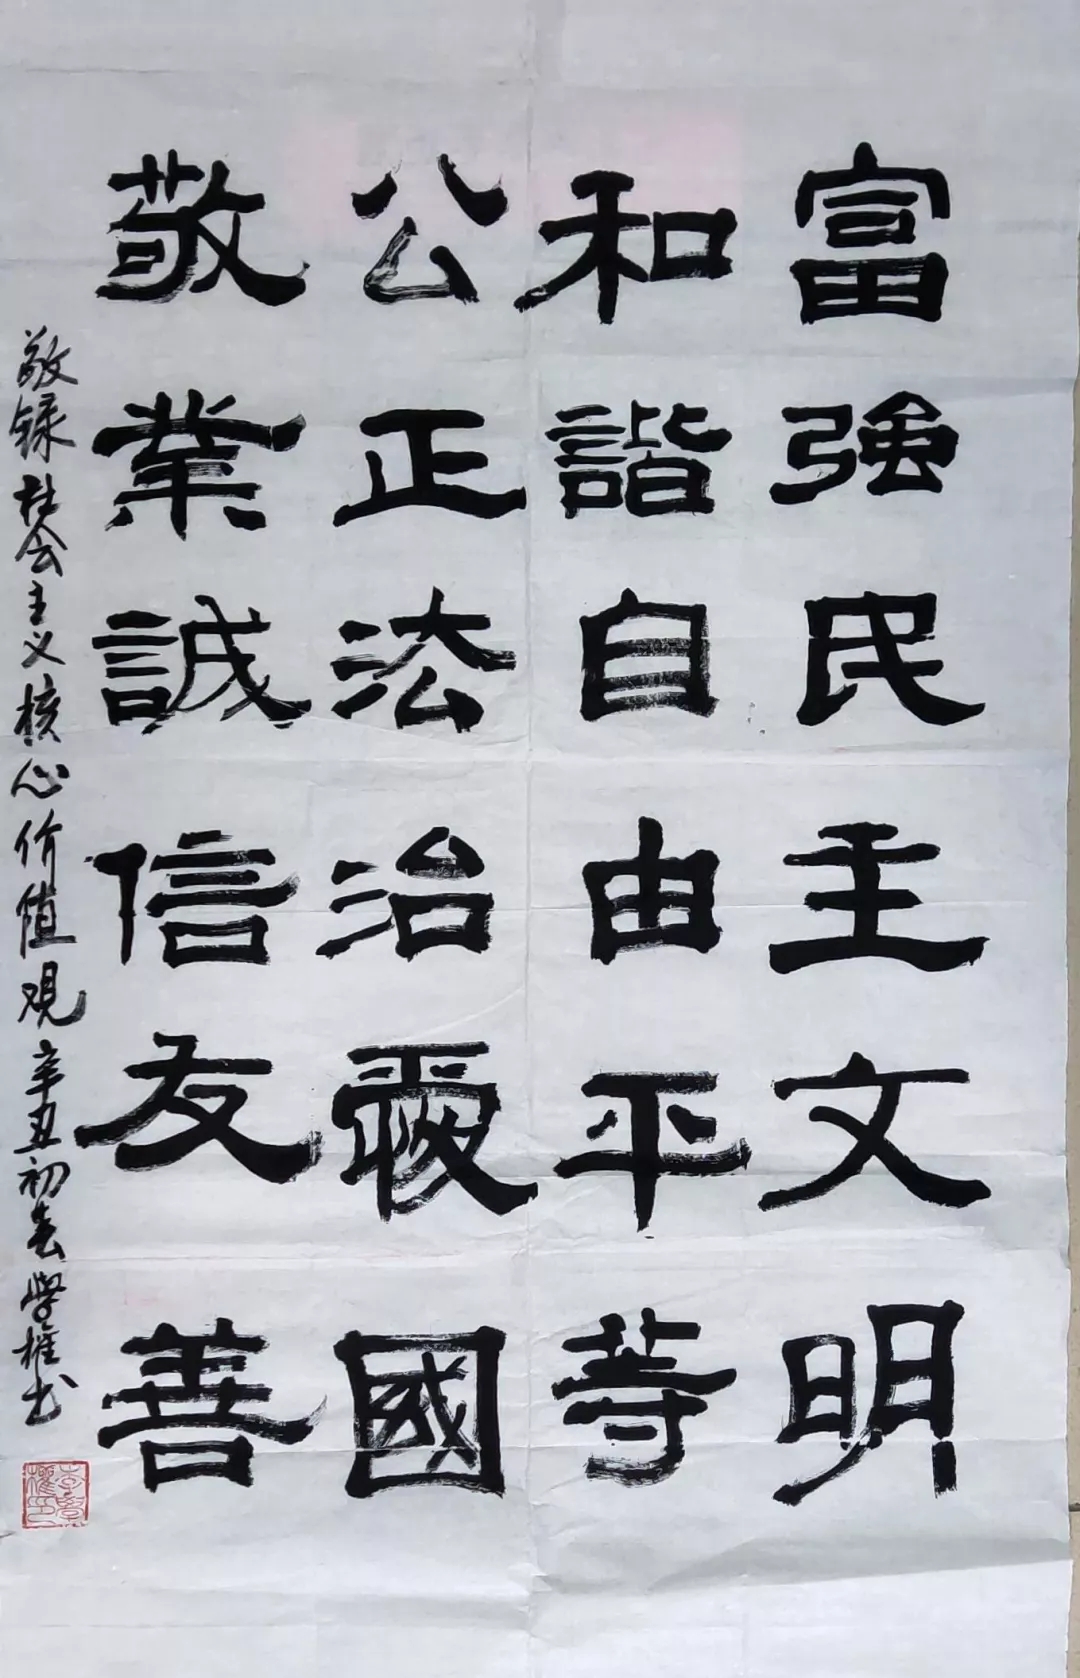 富強民主文明
和諧自由平等
公正法治愛國
敬業誠信友善
敬録社会主义核心价值观辛丑初春學權书